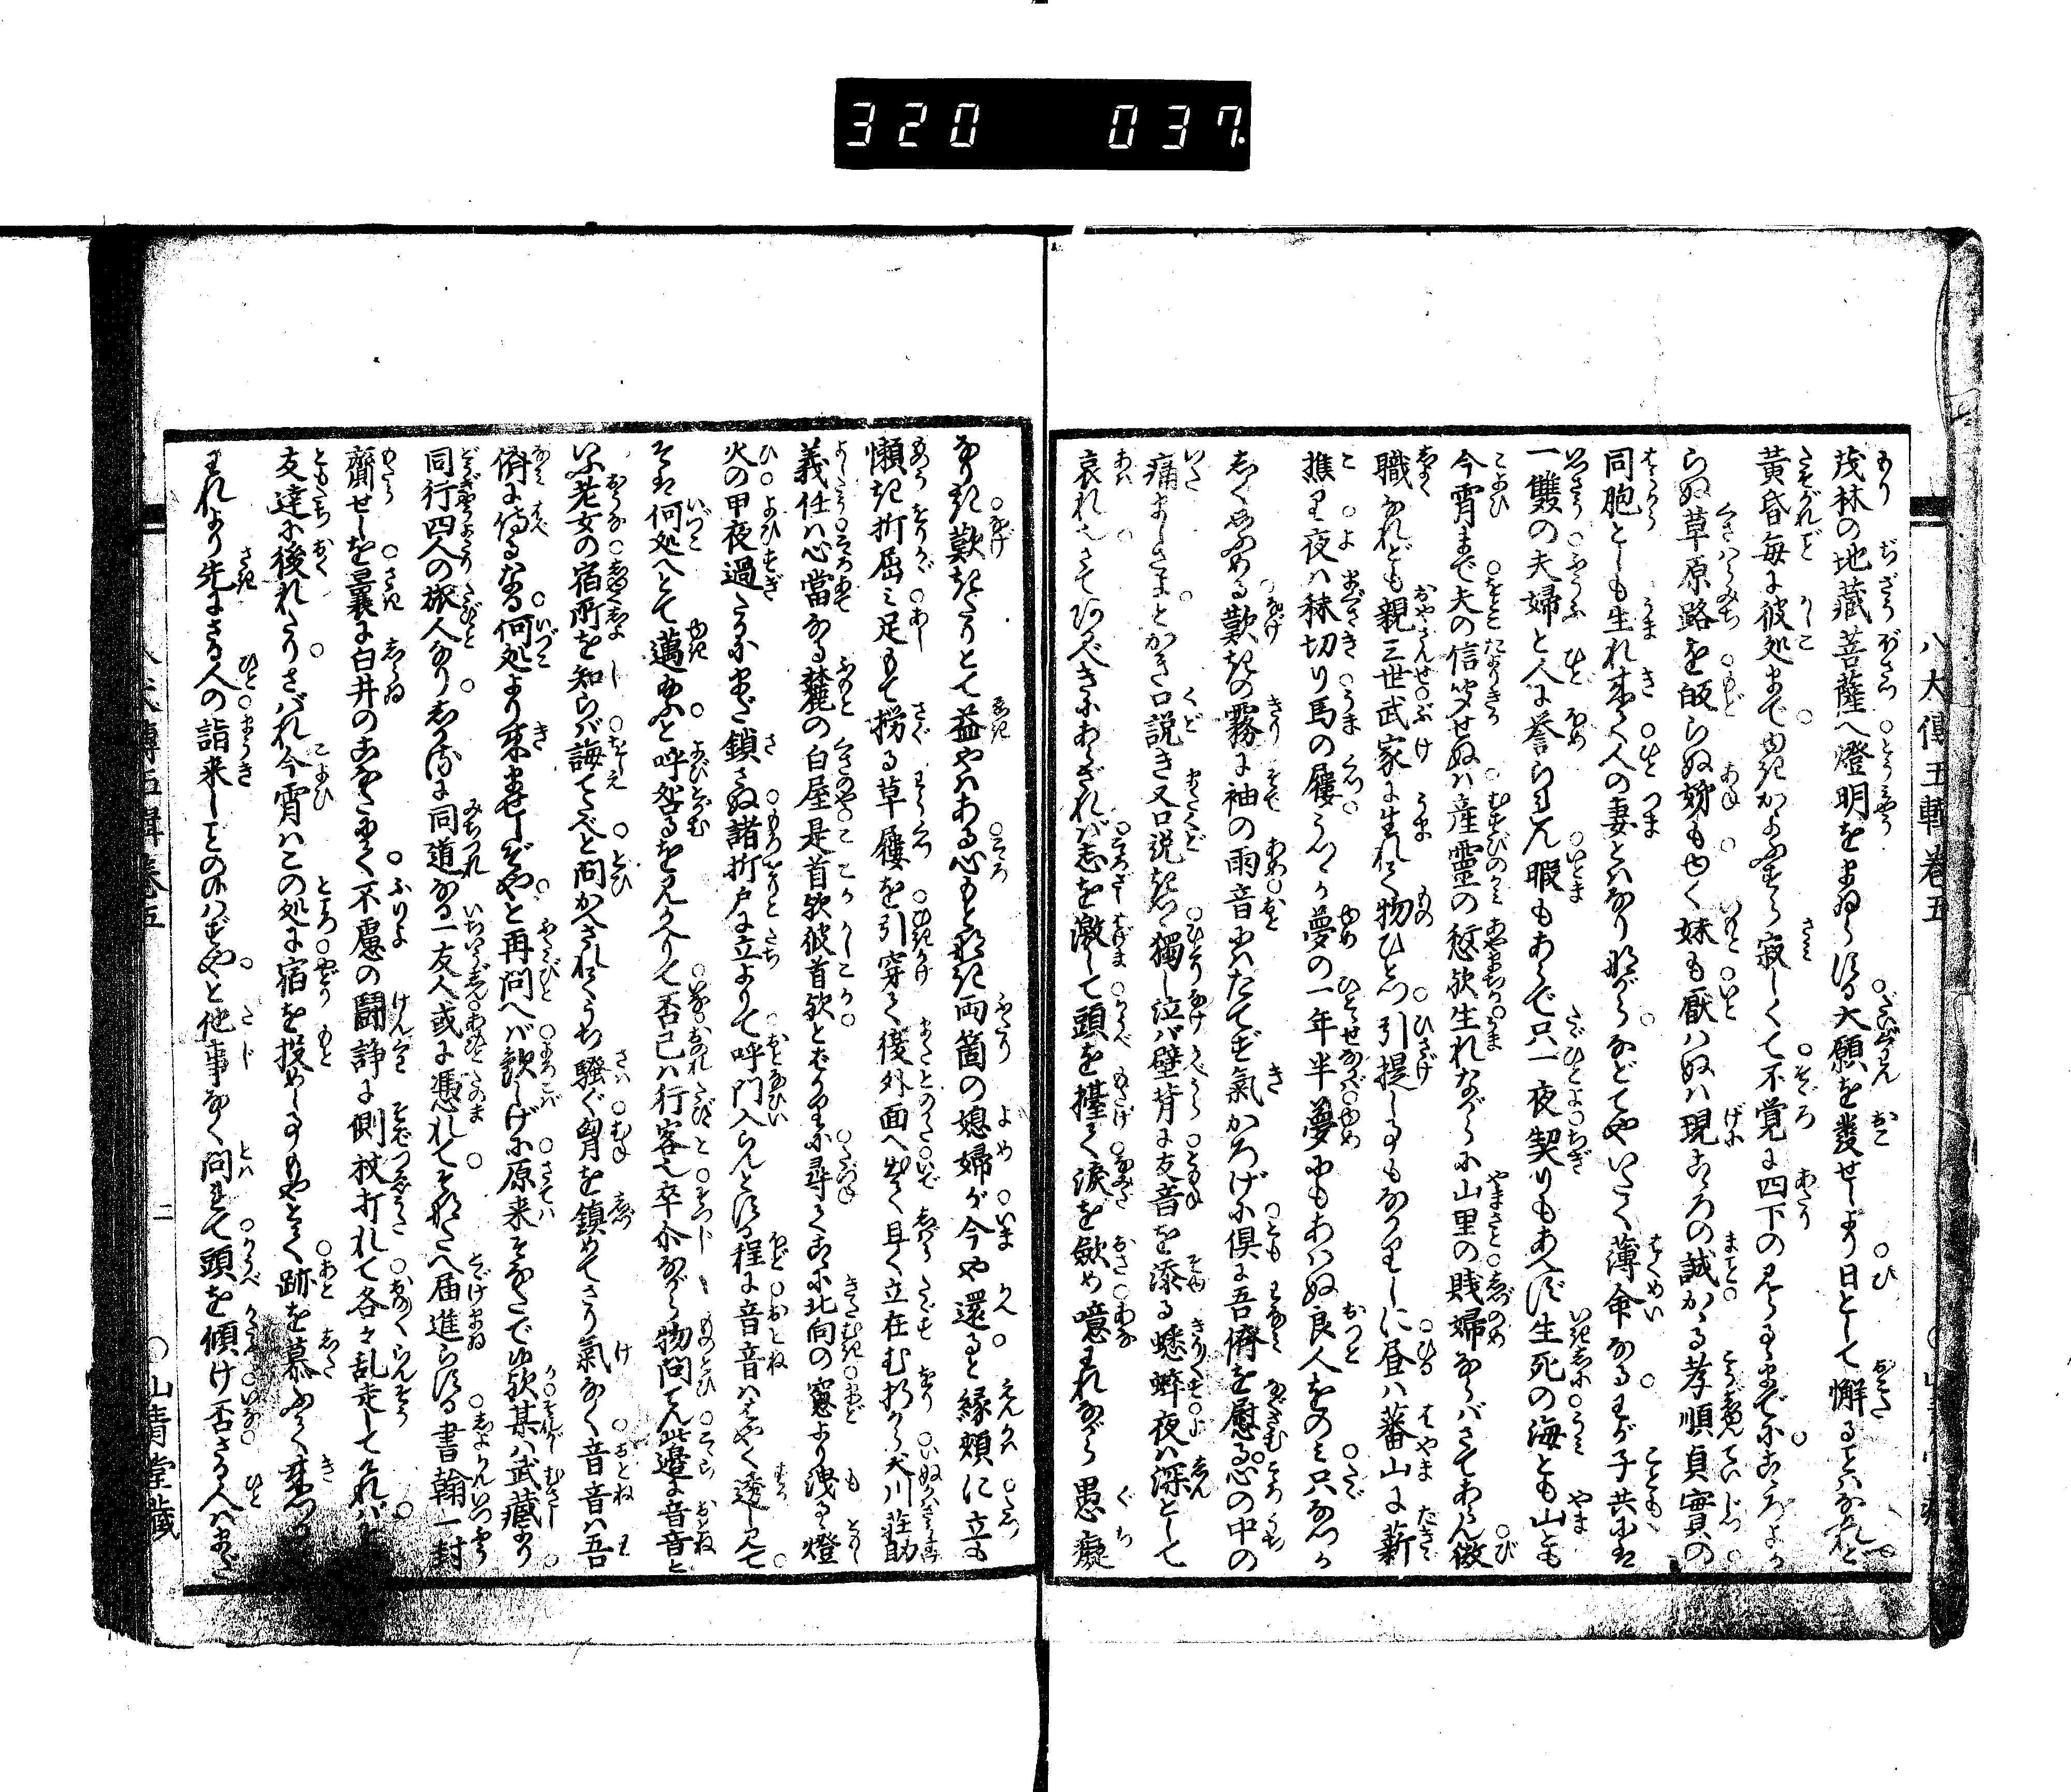 320 037
八犬傳五輯巻五
茂林の地藏菩薩へ燈明をまゐらする大願を發せしより日として懈ることはなけれど
黄昏毎に彼処までゆきかよふすら寂しくて不覚に四下の見らるゝまでにこゝろよか
らぬ草原路を皈らぬ姉もやく妹も厭はぬは現こゝろの誠かゝる孝順貞實の
同胞としも生れ来て人の妻とはなり乍らなどてやいたく薄命なるわが子共は
一雙の夫婦と人に誉られん暇もあらで只一夜契りもあへず生死の海とも山とも
今宵まで夫の信せぬは産霊の愆歟生れながらに山里の賎婦ならばさてあらん微
職なれども親三世武家に生れて物ひとつ引提しこともなかりしに昼は蕃山に薪
樵り夜は秣切り馬の履うつゝか夢の一年半夢にもあはぬ良人をのみ只なつか
しくおもふめる歎きの霧に袖の雨音にはたてず氣かろげに倶に吾儕を慰る心の中の
痛ましさよとかき口説き又口説きつゝ獨し泣ば壁背に友音を添る蟋蟀夜は深として
哀れ也さて阿るべきにあらざれば志を激して頭を擡て涙を歛め噫われながら愚癡
なりき歎きたりとて益やはある心もとなき両箇の媳婦が今や還ると縁頬に立も
懶き折屈み足もて撈る草履を引穿て後外面へ出て且く立在む折から犬川荘助
義任は心當なる麓の白屋是首歟彼首歟とばかりに尋てこゝに北向の窓より洩る燈
火の甲夜過たるにまだ鎖さぬ諸折戸に立よりて呼門入らんとする程に音音ははやく透し見て
そは何処へとて邁給ふと呼咎るを見かへりて否己は行客也卒尓ながら物問てん此邊に音音と
いふ老女の宿所を知らば誨てたべと問かへされてうち騒ぐ胸を鎮めてさり氣なく音音は吾
儕に侍るなる何処より来ませしぞやと再問へば歓しげに原来そなたでゆ歟某は武藏より
同行四人の旅人なりしかるに同道なる一友人或に憑れてそなたへ届進らする書翰一封
齎せしを曩に白井のこなたにて不慮の鬪諍に側杖打れて各々乱走してければ
友達に後れたりさばれ今宵はこの処に宿を投めしこともやとて跡を慕ふて来つる
われより先にさる人の詣来しことのなからずやと他事なく問れて頭を傾け否さる人はまだ
二
山青堂藏